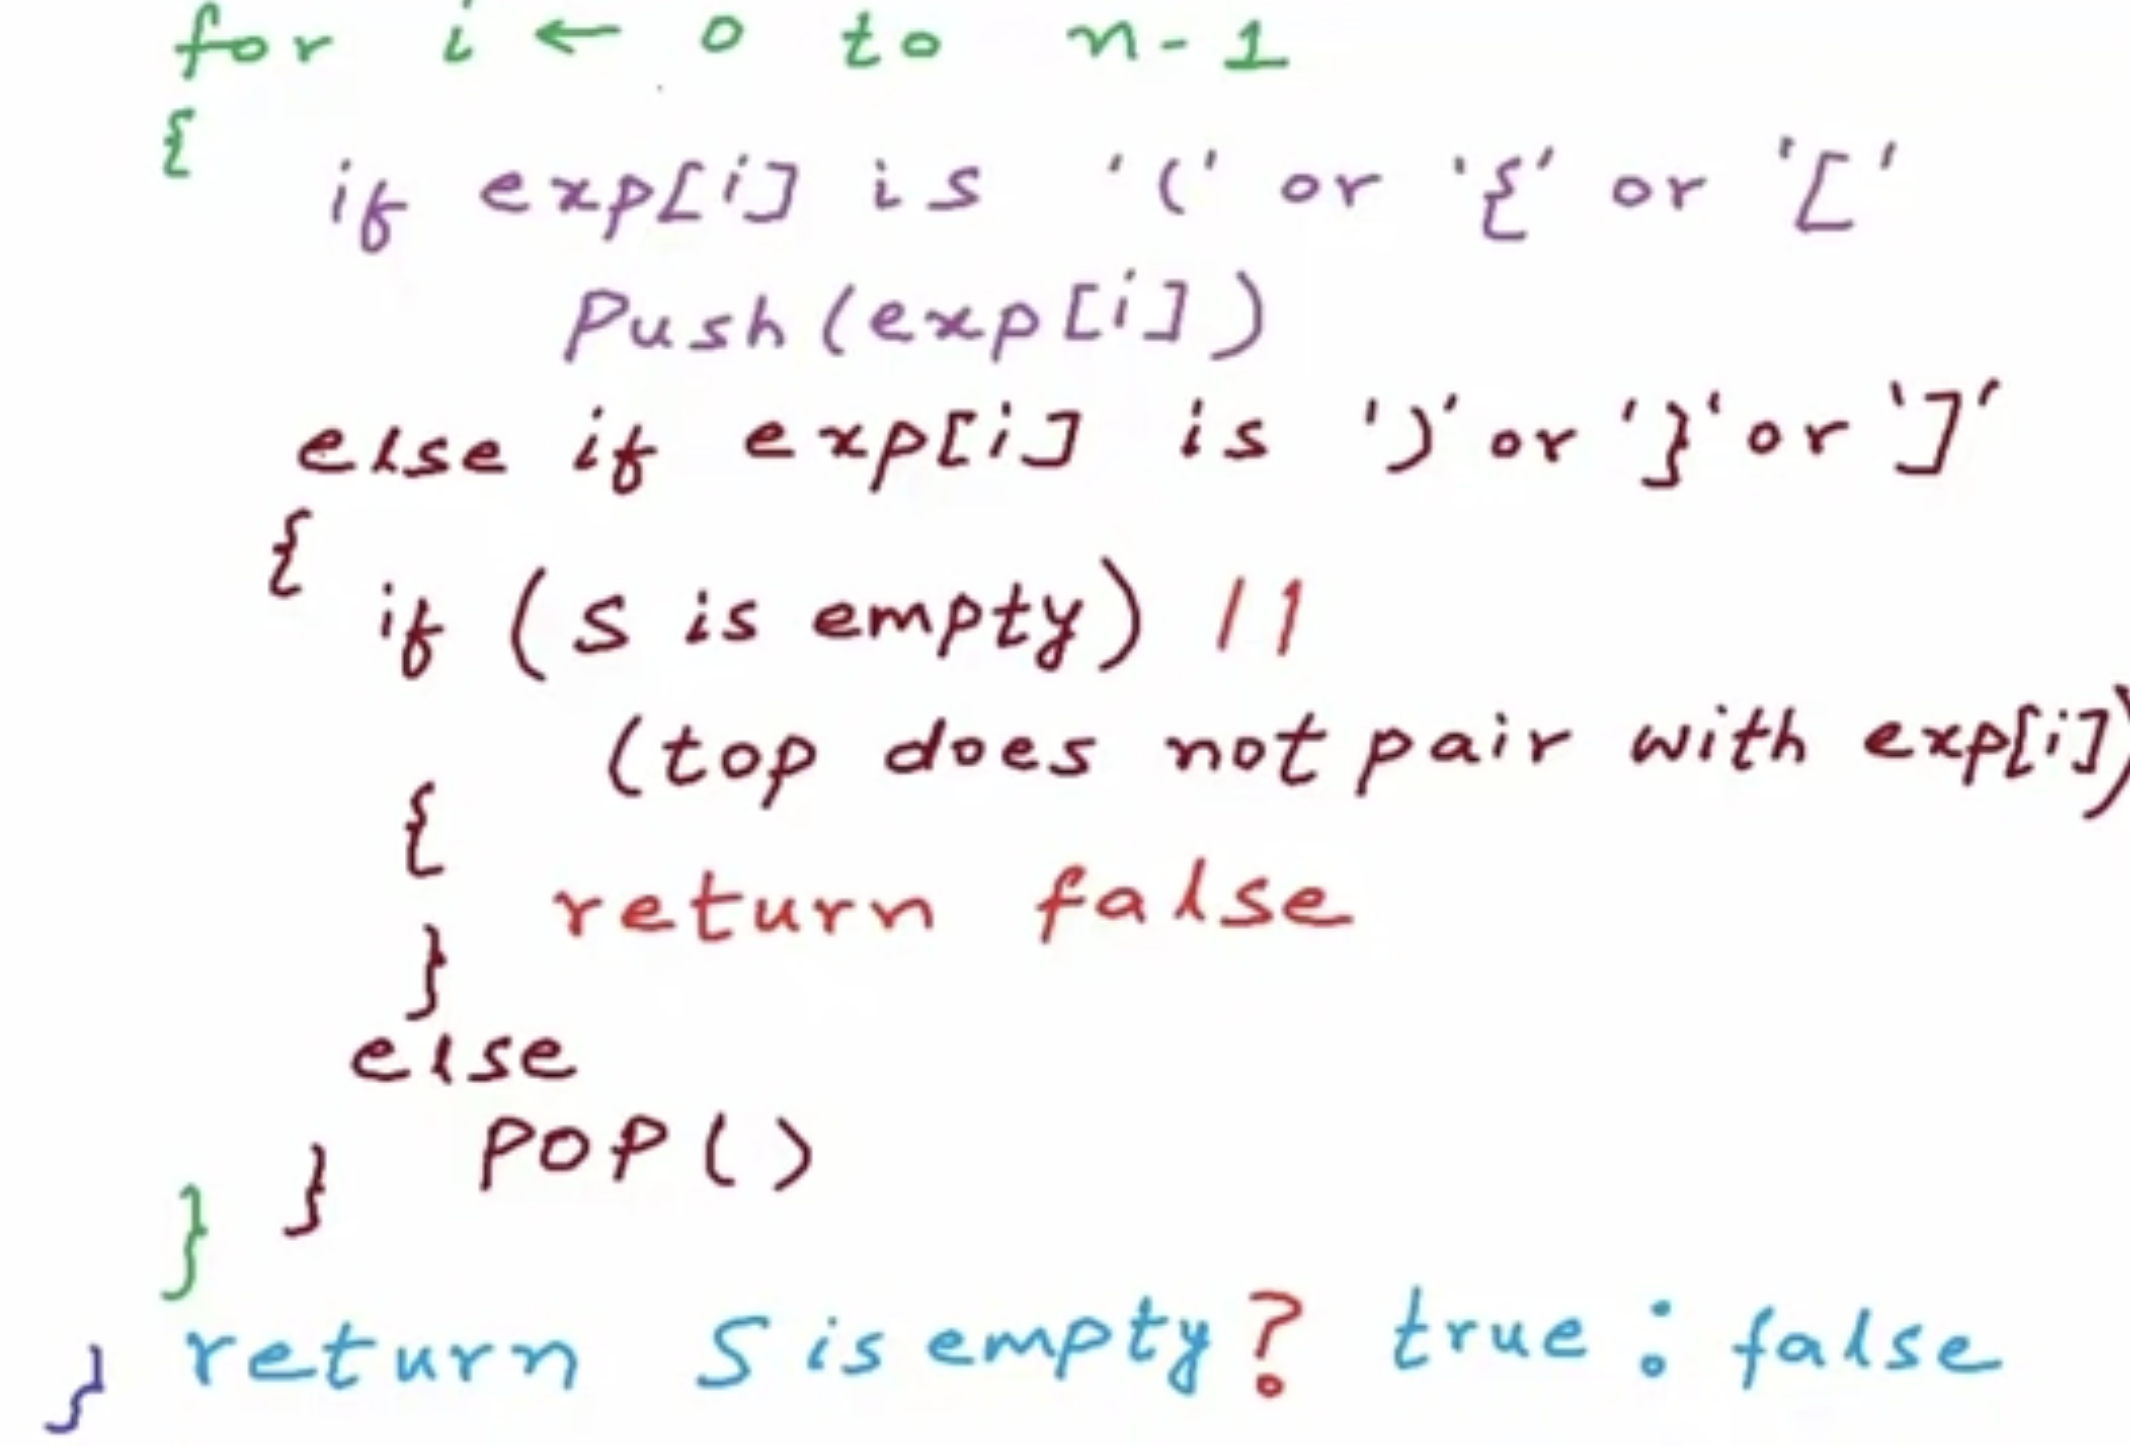 for i ← 0 to n-1
{
if exp[i] is '(' or '{' or '['
Push(exp[i])
else if exp[i] is ')' or '}' or ']'
{
if (S is empty) ||
(top does not pair with exp[i])
{
return false
}
else
POP()
}
}
return S is empty? true : false
}